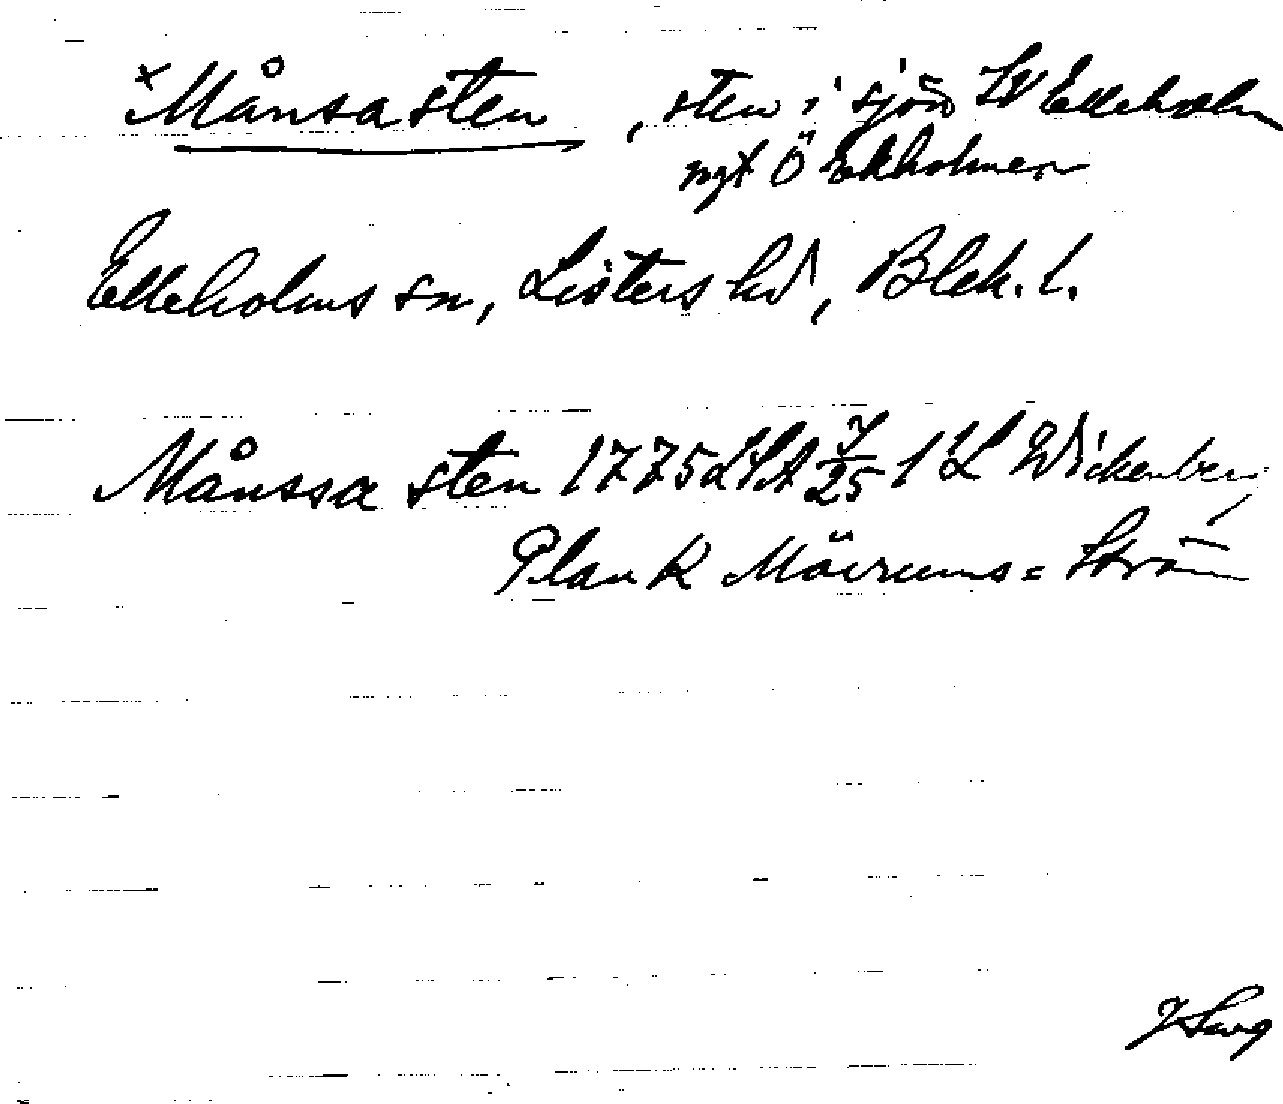 × Månsasten, sten i sjön SV Elleholm
ngt Ö Ekholmen
Elleholms sn, Listers hd, Blek. l.
Månssa sten 1775 LSA 7/25 1 L Wickenberg,
Plan k Mörrums=Ström